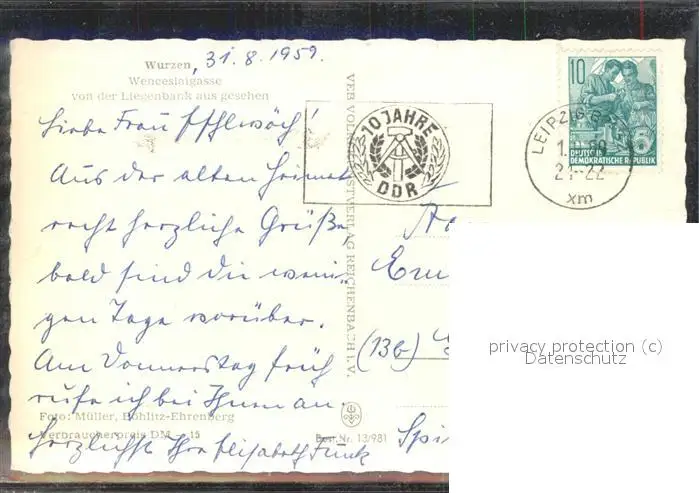 Wurzen, 31.8.1959.
Wenceslaigasse
von der Liegenbank aus gesehen
Liebe Frau !
Aus der alten Heimat
recht herzliche Grüße,
bald sind die weni-
gen Tage vorüber.
Am Donnerstag früh
rufe ich bei Ihnen an.
Foto: Müller, Böhlitz-Ehrenberg
Verbraucherpreis DM -.15
Herzlichst Ihre Elisabeth Funk
VEB VOLKSKUNSTVERLAG REICHENBACH I. V.
Best.Nr. 13/981
10 JAHRE
DDR
LEIPZIG
21-22
xm
10
DEUTSCHE
DEMOKRATISCHE REPUBLIK
(13b)
privacy protection (c)
Datenschutz